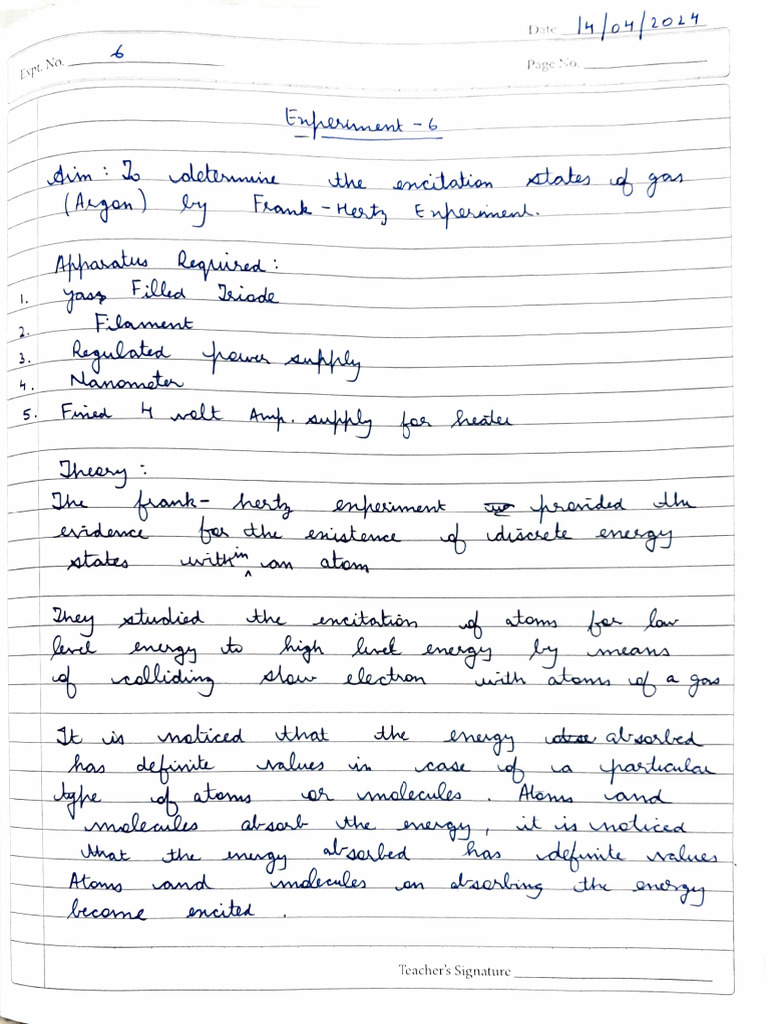 Date 14/04/2024
Expt. No. 6
Page No.
Experiment - 6
Aim : To determine the excitation states of gas
(Argon) by Frank - Hertz Experiment.
Apparatus Required :
1. Gas Filled Triode
2. Filament
3. Regulated power supply
4. Nanometer
5. Fixed 4 volt Amp. supply for heater
Theory :
The frank - hertz experiment provided the
evidence for the existence of discrete energy
states within an atom
They studied the excitation of atoms for low
level energy to high level energy by means
of colliding slow electron with atoms of a gas
It is noticed that the energy absorbed
has definite values in case of a particular
type of atoms or molecules. Atoms and
molecules absorb the energy, it is noticed
that the energy absorbed has definite values.
Atoms and molecules on absorbing the energy
become excited.
Teacher's Signature